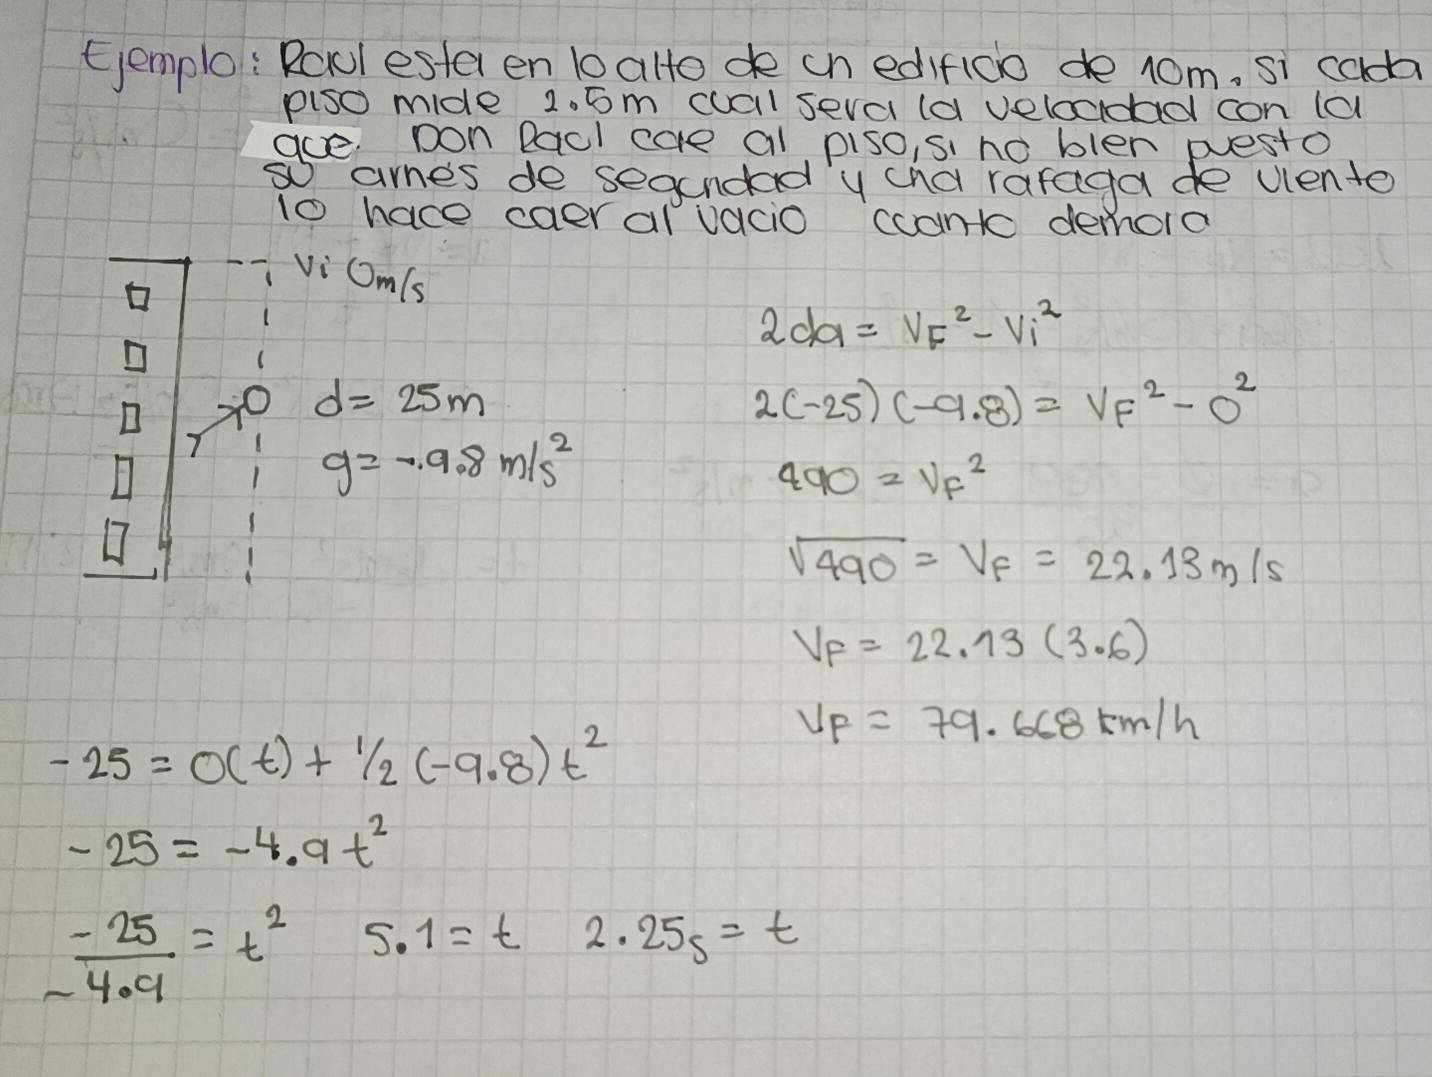 Ejemplo: Raul esta en lo alto de un edificio de 10m. si cada
piso mide 2.5m cual sera la velocidad con la
que. Don Raul cae al piso, si no bien puesto
su arnés de seguridad y una rafaga de viento
lo hace caer al vacio cuanto demora
Vi 0m/s
d= 25m
g= -9.8 m/s²
2da = VF² - Vi²
2(-25)(-9.8) = VF² - 0²
490 = VF²
√490 = VF = 22.13 m/s
VF = 22.13 (3.6)
VF = 79.668 km/h
-25 = 0(t) + 1/2 (-9.8) t²
-25 = -4.9 t²
-25/-4.9 = t² 5.1 = t 2.25s = t